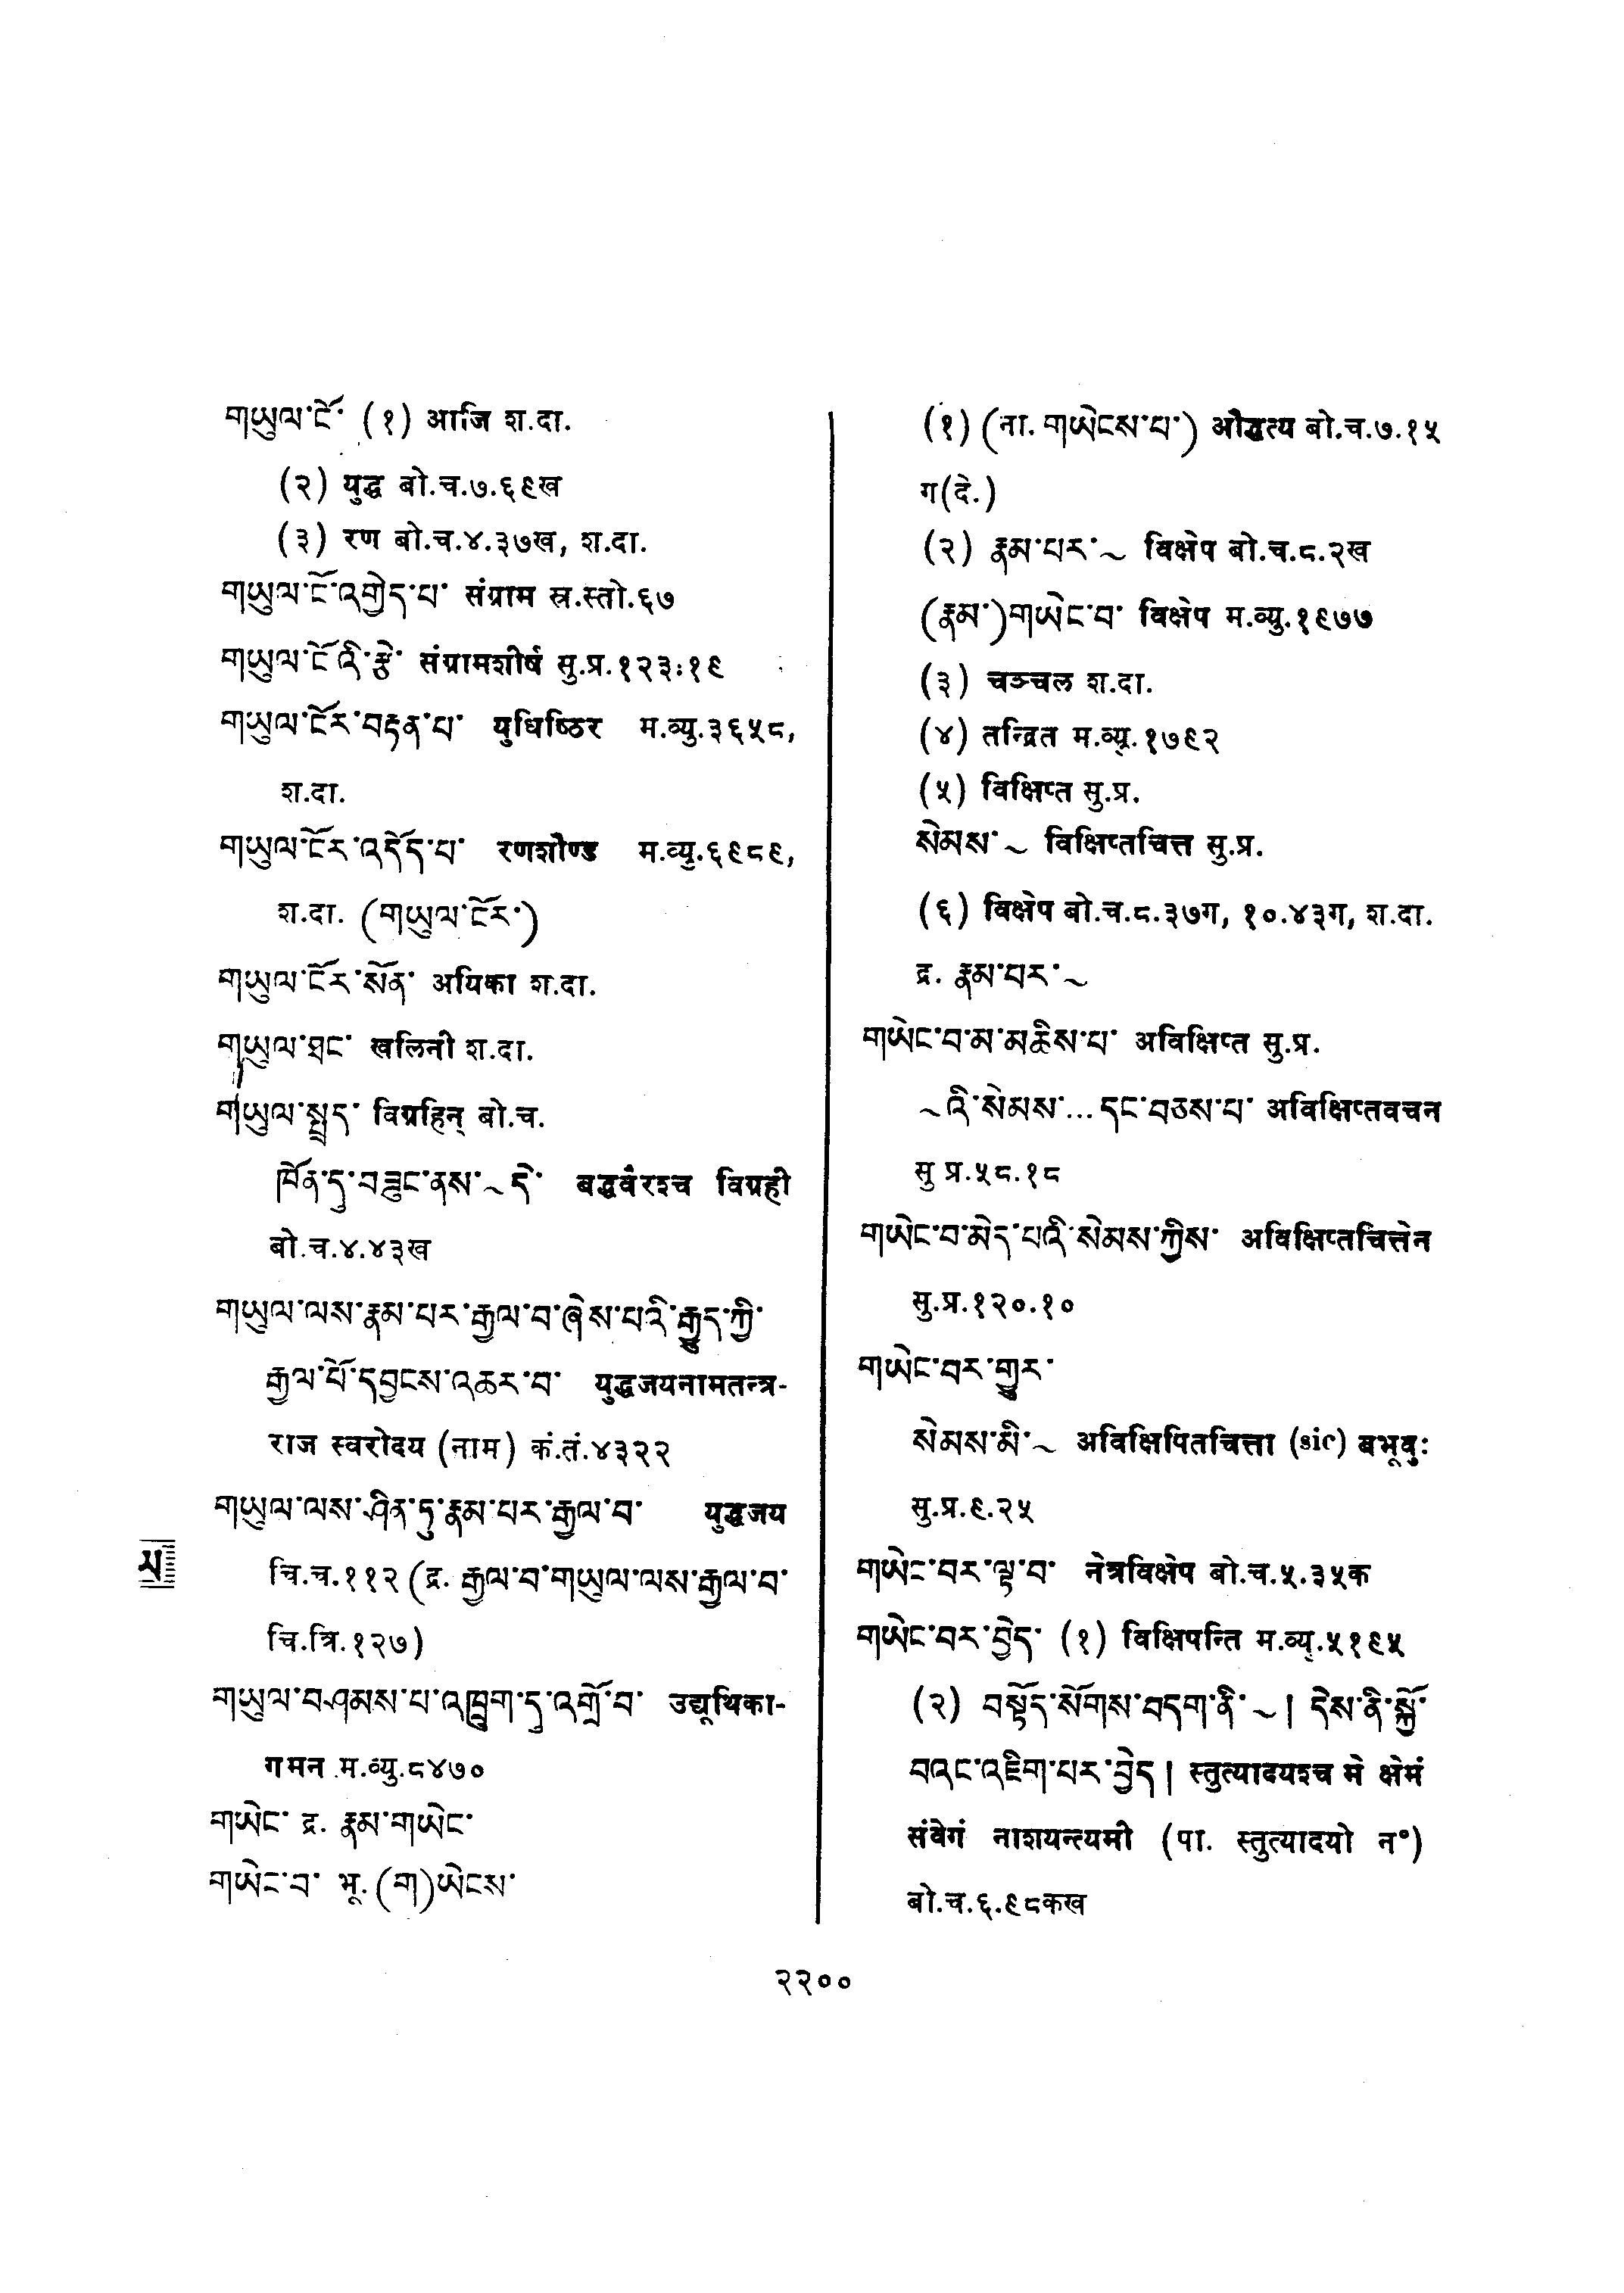 གཡུལ་ངོ་ (१) आजि श.दा.
(२) युद्ध बो.च.७.६९ख
(३) रण बो.च.४.३७ख, श.दा.
གཡུལ་ངོ་འགྱེད་པ་ संग्राम स्र.स्तो.६७
གཡུལ་ངོའི་རྩེ་ संग्रामशीर्ष सु.प्र.१२३.१९
གཡུལ་ངོར་བརྟན་པ་ युधिष्ठिर म.व्यु.३६५८,
श.दा.
གཡུལ་ངོར་འདོད་པ་ रणशौण्ड म.व्यु.६९८९,
श.दा. (གཡུལ་ངོར་)
གཡུལ་ངོར་སོན་ अयिका श.दा.
གཡུལ་ཐང་ खलिनी श.दा.
གཡུལ་སྤྲད་ विग्रहिन् बो.च.
ཁོན་དུ་བཟུང་ནས་~དེ་ बद्धवैरश्च विग्रही
बो.च.४.४३ख
གཡུལ་ལས་རྣམ་པར་རྒྱལ་བ་ཞེས་པའི་རྒྱུད་ཀྱི་
རྒྱལ་པོ་དབྱངས་འཆར་བ་ युद्धजयनामतन्त्र-
राज स्वरोदय (नाम) कं.तं.४३२२
གཡུལ་ལས་ཤིན་ཏུ་རྣམ་པར་རྒྱལ་བ་ युद्धजय
चि.च.११२ (द्र. རྒྱལ་བ་གཡུལ་ལས་རྒྱལ་བ་
चि.त्रि.१२७)
གཡུལ་བཤམས་པ་འཁྲུག་ཏུ་འགྲོ་བ་ उद्यूथिका-
गमन म.व्यु.८४७०
གཡེང་ द्र. རྣམ་གཡེང་
གཡེང་བ་ भू. (ག)ཡེངས་
(१) (ना. གཡེངས་པ་) औद्धत्य बो.च.७.१५
ग(दे.)
(२) རྣམ་པར་~ विक्षेप बो.च.८.२ख
(རྣམ་)གཡེང་བ་ विक्षेप म.व्यु.१९७७
(३) चञ्चल श.दा.
(४) तन्द्रित म.व्यु.१७९२
(५) विक्षिप्त सु.प्र.
སེམས་~ विक्षिप्तचित्त सु.प्र.
(६) विक्षेप बो.च.८.३७ग, १०.४३ग, श.दा.
द्र. རྣམ་པར་~
གཡེང་བ་མ་མཆིས་པ་ अविक्षिप्त सु.प्र.
~འི་སེམས་... དང་བཅས་པ་ अविक्षिप्तवचन
सु प्र.५८.१८
གཡེང་བ་མེད་པའི་སེམས་ཀྱིས་ अविक्षिप्तचित्तेन
सु.प्र.१२०.१०
གཡེང་བར་གྱུར་
སེམས་མི་~ अविक्षिपितचित्ता (sic) बभूवुः
सु.प्र.९.२५
གཡེང་བར་ལྟ་བ་ नेत्रविक्षेप बो.च.५.३५क
གཡེང་བར་བྱེད་ (१) विक्षिपन्ति म.व्यु.५१९५
(२) བསྟོད་སོགས་བདག་ནི་~། དེས་ནི་སྐྱོ་
བའང་འཇིག་པར་བྱེད། स्तुत्यादयश्च मे क्षेमं
संवेगं नाशयन्त्यमी (पा. स्तुत्यादयो न°)
बो.च.६.९८कख
ཡ
२२००